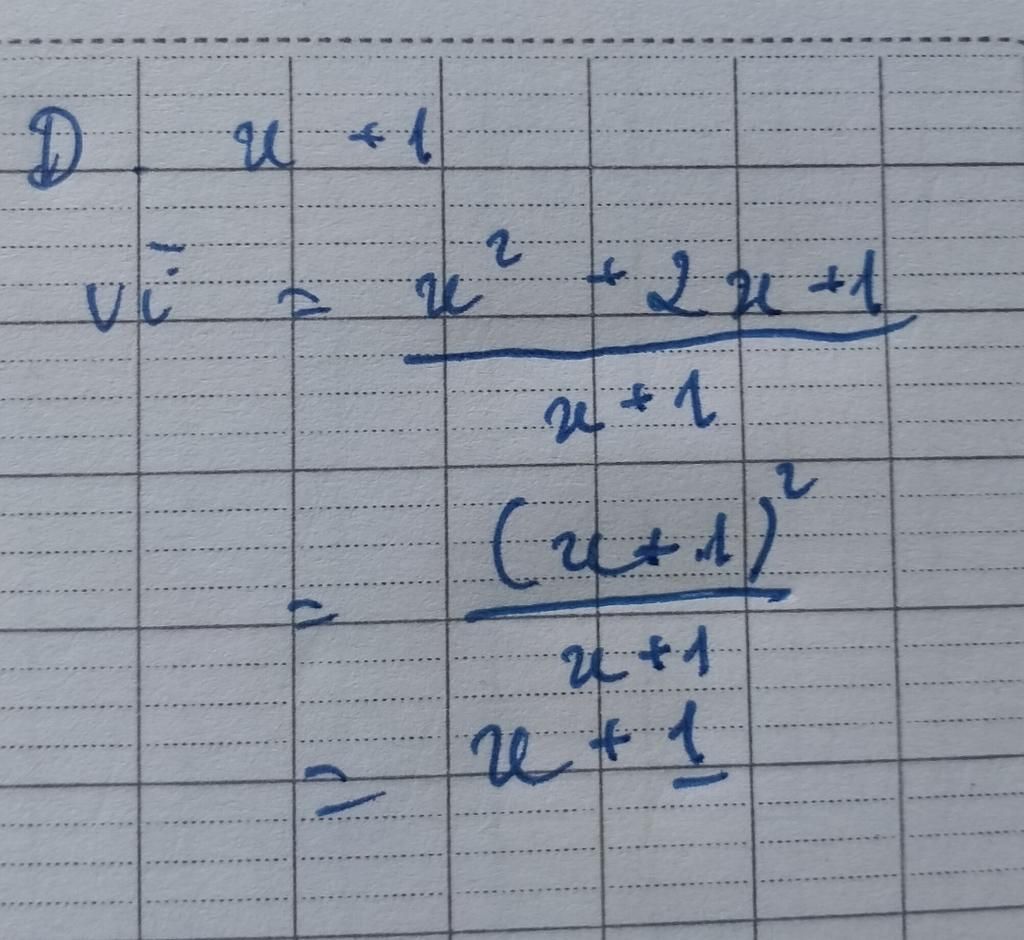 D. x + 1
vì = x² + 2x + 1
x + 1
= (x + 1)²
x + 1
= x + 1